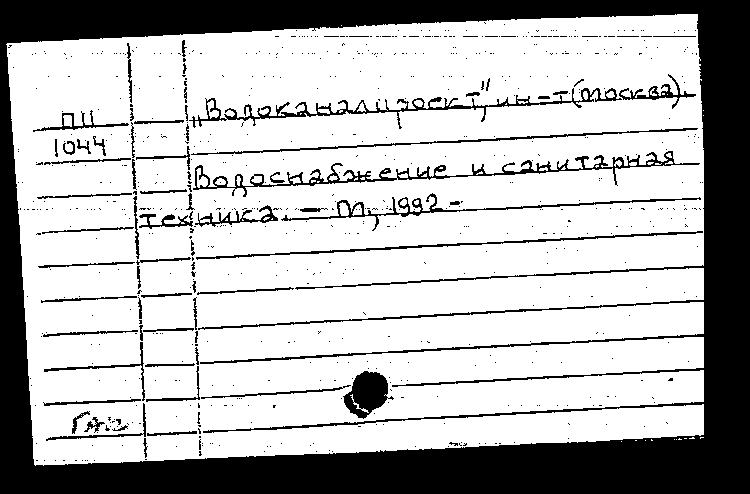 П11
1044
„Водоканалпроект", ин-т (Москва).
Водоснабжение и санитарная
техника. — М, 1992 -